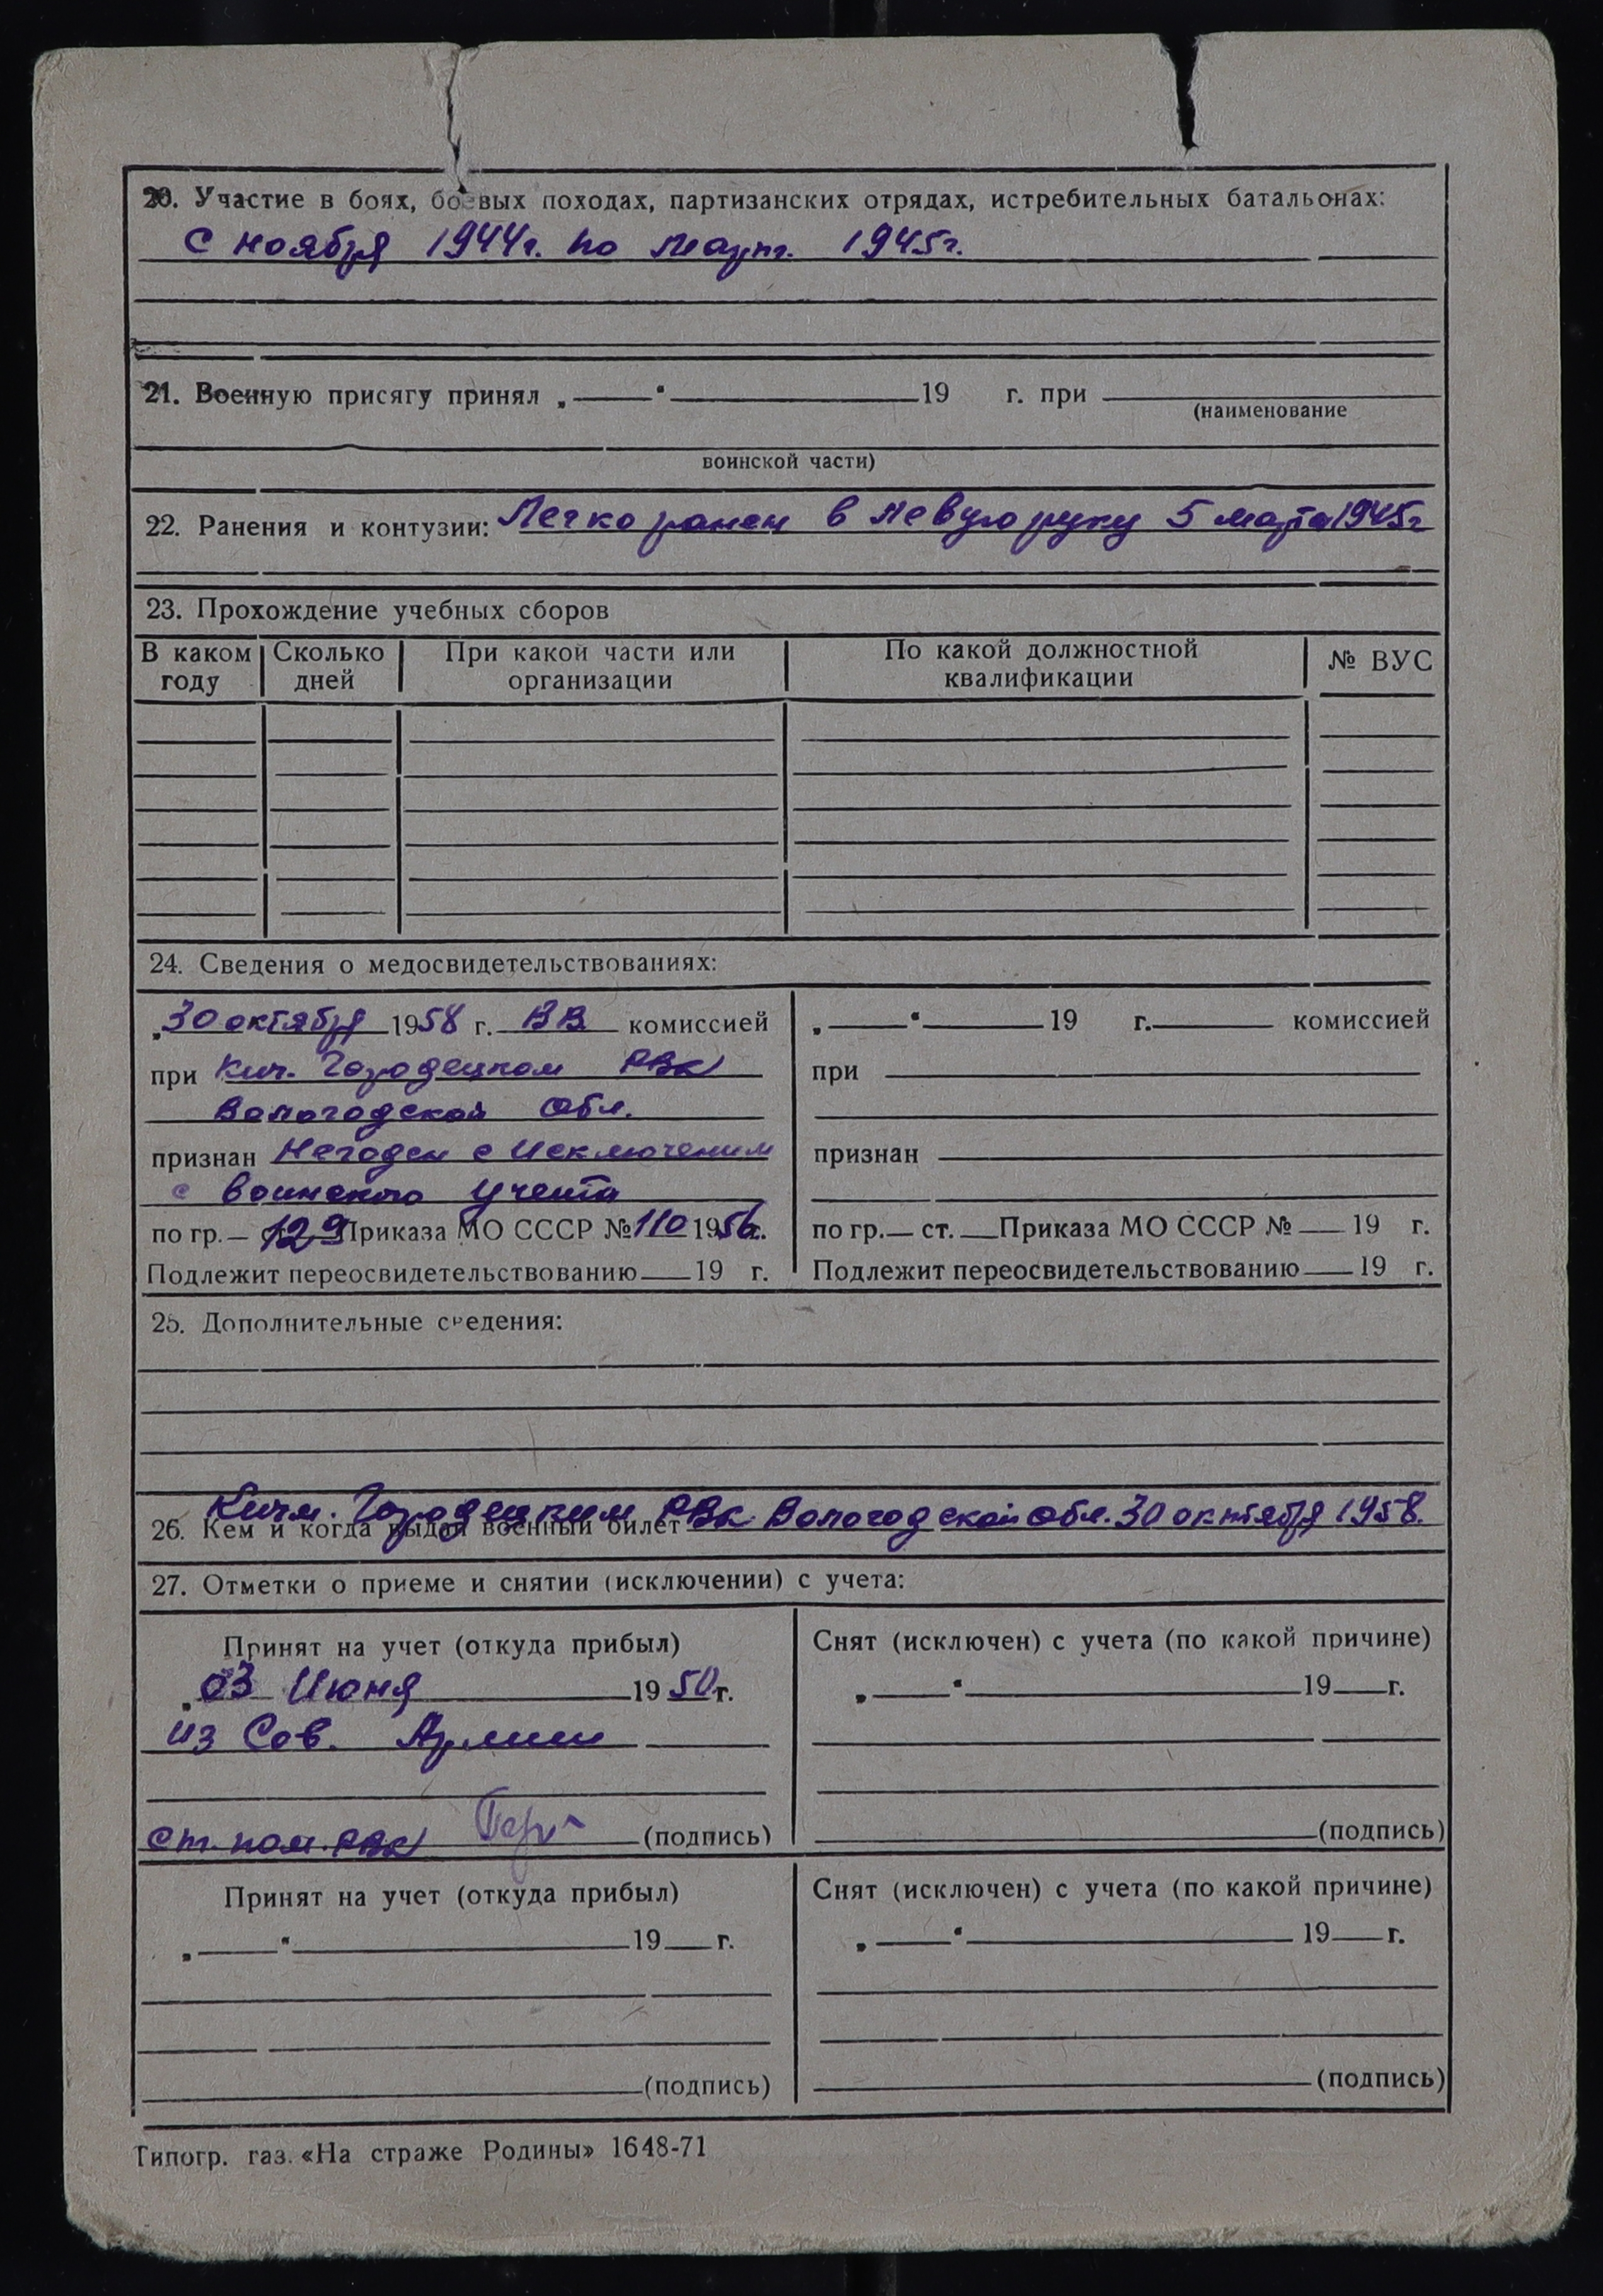 20. Участие в боях, боевых походах, партизанских отрядах, истребительных батальонах:
с ноября 1944г. по март. 1945г.
21. Военную присягу принял „ “ 19 г. при
(наименование
воинской части)
22. Ранения и контузии: Легко ранен в левую руку 5 марта 1945г
23. Прохождение учебных сборов
В каком году Сколько дней При какой части или организации По какой должностной квалификации № ВУС
24. Сведения о медосвидетельствованиях:
„30 октября 1958 г. ВВ комиссией
при Кич. Городецком РВК
Вологодской обл.
признан Негоден с исключением
с воинского учета
по гр.— ст. 129 Приказа МО СССР №110 1956г.
Подлежит переосвидетельствованию 19 г.
„ “ 19 г. комиссией
при
признан
по гр.— ст. Приказа МО СССР № 19 г.
Подлежит переосвидетельствованию 19 г.
25. Дополнительные сведения:
26. Кем и когда выдан военный билет Кичм. Городецким РВК Вологодской обл. 30 октября 1958.
27. Отметки о приеме и снятии (исключении) с учета:
Принят на учет (откуда прибыл)
„03 Июня 1950г.
из Сов. Армии
ст. пом. РВК (подпись)
Снят (исключен) с учета (по какой причине)
„ “ 19 г.
(подпись)
Принят на учет (откуда прибыл)
„ “ 19 г.
(подпись)
Снят (исключен) с учета (по какой причине)
„ “ 19 г.
(подпись)
Типогр. газ. «На страже Родины» 1648-71